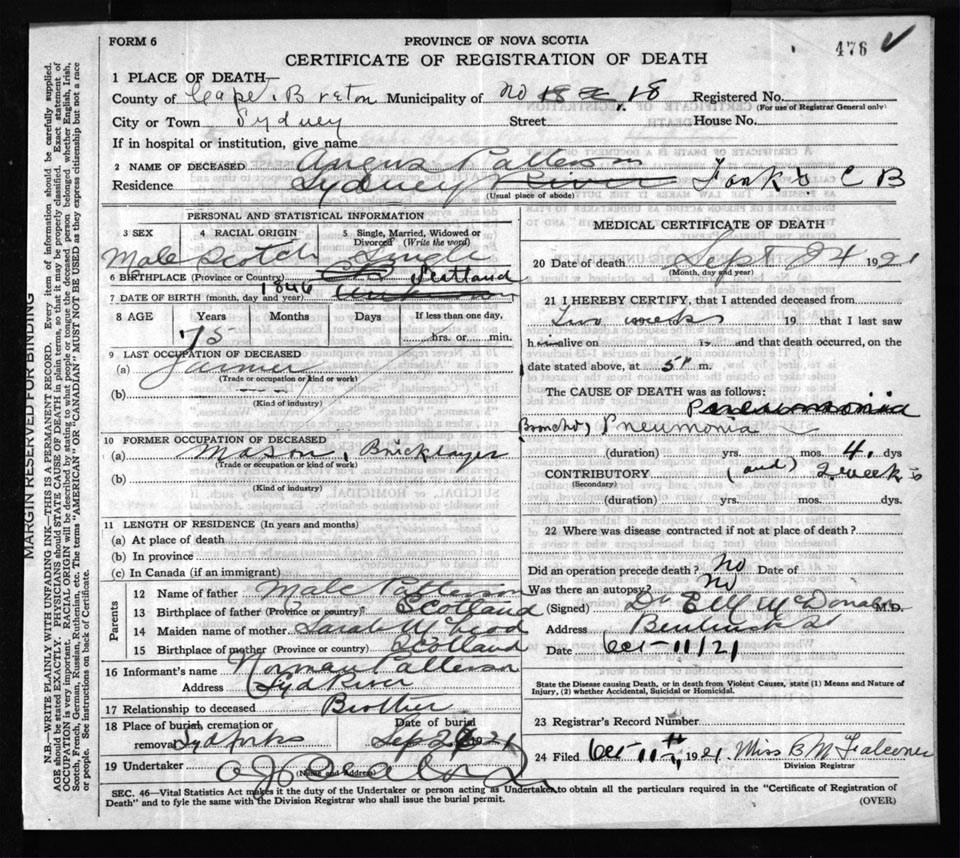 FORM 6
PROVINCE OF NOVA SCOTIA
476
CERTIFICATE OF REGISTRATION OF DEATH
1 PLACE OF DEATH—
County of Cape Breton Municipality of No 18 Registered No.
(For use of Registrar General only)
City or Town Sydney Street House No.
If in hospital or institution, give name
2 NAME OF DECEASED Angus Patterson
Residence Sydney River Forks C B
(Usual place of abode)
PERSONAL AND STATISTICAL INFORMATION
3 SEX 4 RACIAL ORIGIN 5 Single, Married, Widowed or Divorced (Write the word)
Male Scotch Single
6 BIRTHPLACE (Province or Country) Scotland
7 DATE OF BIRTH (month, day and year) 1846
8 AGE Years Months Days If less than one day,
75 hrs. or min.
9 LAST OCCUPATION OF DECEASED
(a) Farmer
(Trade or occupation or kind or work)
(b)
(Kind of industry)
10 FORMER OCCUPATION OF DECEASED
(a) Mason, Bricklayer
(Trade or occupation or kind of work)
(b)
(Kind of industry)
11 LENGTH OF RESIDENCE (In years and months)
(a) At place of death
(b) In province
(c) In Canada (if an immigrant)
Parents
12 Name of father Malc Patterson
13 Birthplace of father (Province or country) Scotland
14 Maiden name of mother Sarah McLeod
15 Birthplace of mother (Province or country) Scotland
16 Informant's name Norman Patterson
Address Syd River
17 Relationship to deceased Brother
18 Place of burial, cremation or removal Syd forks Date of burial Sep 26 1921
19 Undertaker
(Name and Address)
MEDICAL CERTIFICATE OF DEATH
20 Date of death Sept 24 1921
(Month, day and year)
21 I HEREBY CERTIFY, that I attended deceased from
Two weeks 19 that I last saw
h alive on 19 and that death occurred, on the
date stated above, at 5 m.
The CAUSE OF DEATH was as follows:
Pneumonia
Broncho, Pneumonia
(duration) yrs. mos. 4 dys
CONTRIBUTORY (and) 2 weeks
(Secondary)
(duration) yrs. mos. dys
22 Where was disease contracted if not at place of death?
Did an operation precede death? No Date of
Was there an autopsy? No
(Signed) Dr McDonald M.D.
Address Bentinck St
Date Oct 11/21
State the Disease causing Death, or in death from Violent Causes, state (1) Means and Nature of
Injury, (2) whether Accidental, Suicidal or Homicidal.
23 Registrar's Record Number
24 Filed Oct 11th, 1921 Miss B M Falconer
Division Registrar
SEC. 46—Vital Statistics Act makes it the duty of the Undertaker or person acting as Undertaker to obtain all the particulars required in the "Certificate of Registration of
Death" and to fyle the same with the Division Registrar who shall issue the burial permit.
(OVER)
MARGIN RESERVED FOR BINDING
N.B.—WRITE PLAINLY WITH UNFADING INK—THIS IS A PERMANENT RECORD. Every item of information should be carefully supplied.
AGE should be stated EXACTLY. PHYSICIANS should STATE CAUSE OF DEATH in plain terms, so that it may be properly classified. Exact statement of
OCCUPATION is very important. RACIAL ORIGIN will be described by stating to what people or tongue the deceased person belonged whether English, Irish,
Scotch, French, German, Russian, Ruthenian, etc. The terms "AMERICAN" OR "CANADIAN" MUST NOT BE USED as they express citizenship but not a race
or people. See instructions on back of Certificate.